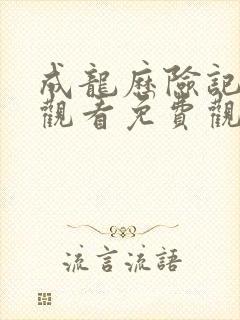 成龍歷險記
觀看免費觀
流言流語